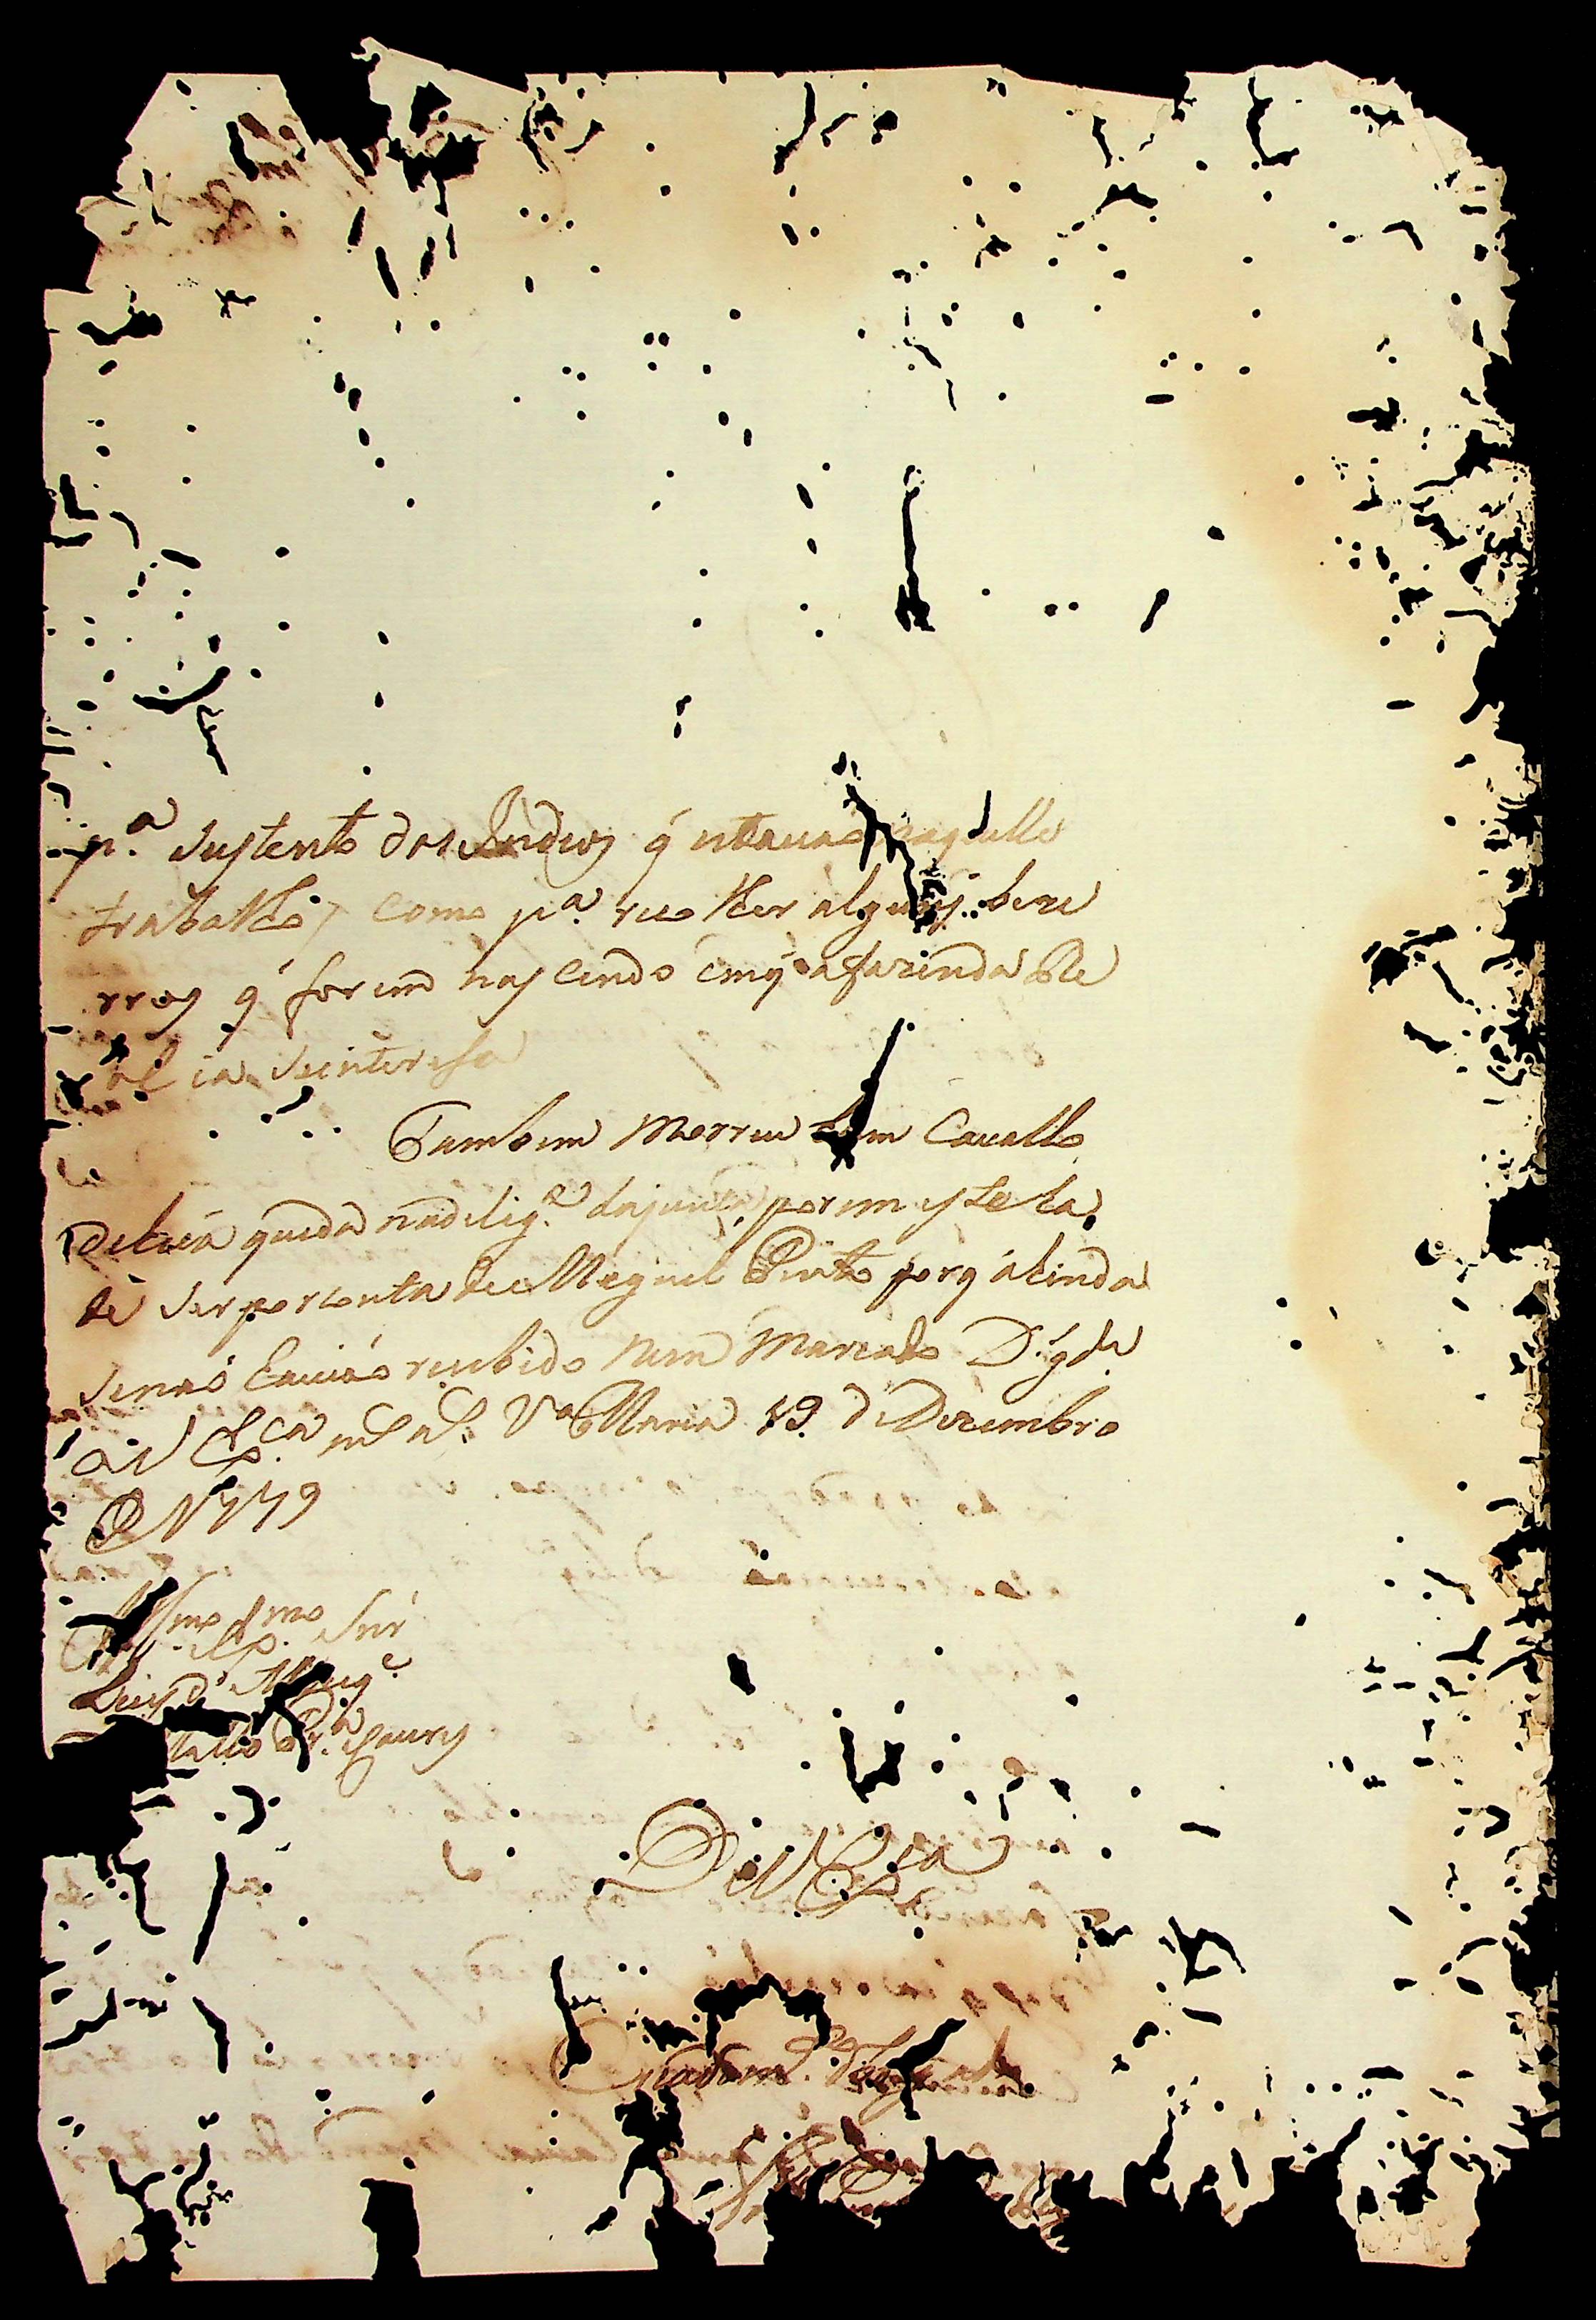 p.ª sustento dos Indios q̃ estavaõ naquelle
trabalho, como p.ª recolher alguns beze
rros q̃ forem nascendo em q̃ a fazenda Re
al ia se interesa
Tambem morreu hum Cavallo
de hũa queda na dilig.ª da junta, porem este ha
de ser por conta de Miguel Pinto porq̃ ainda
se naõ havia recebido nem Marcado D.ˢ g.de
a V Ex.cª m.s a.s V.ª Maria 19 de Dezembro
D 1779
Ill.mo Ex.mo Snr
Luis d' Albuq.e
Mello Pr.ª Caceres
De V Ex.cia